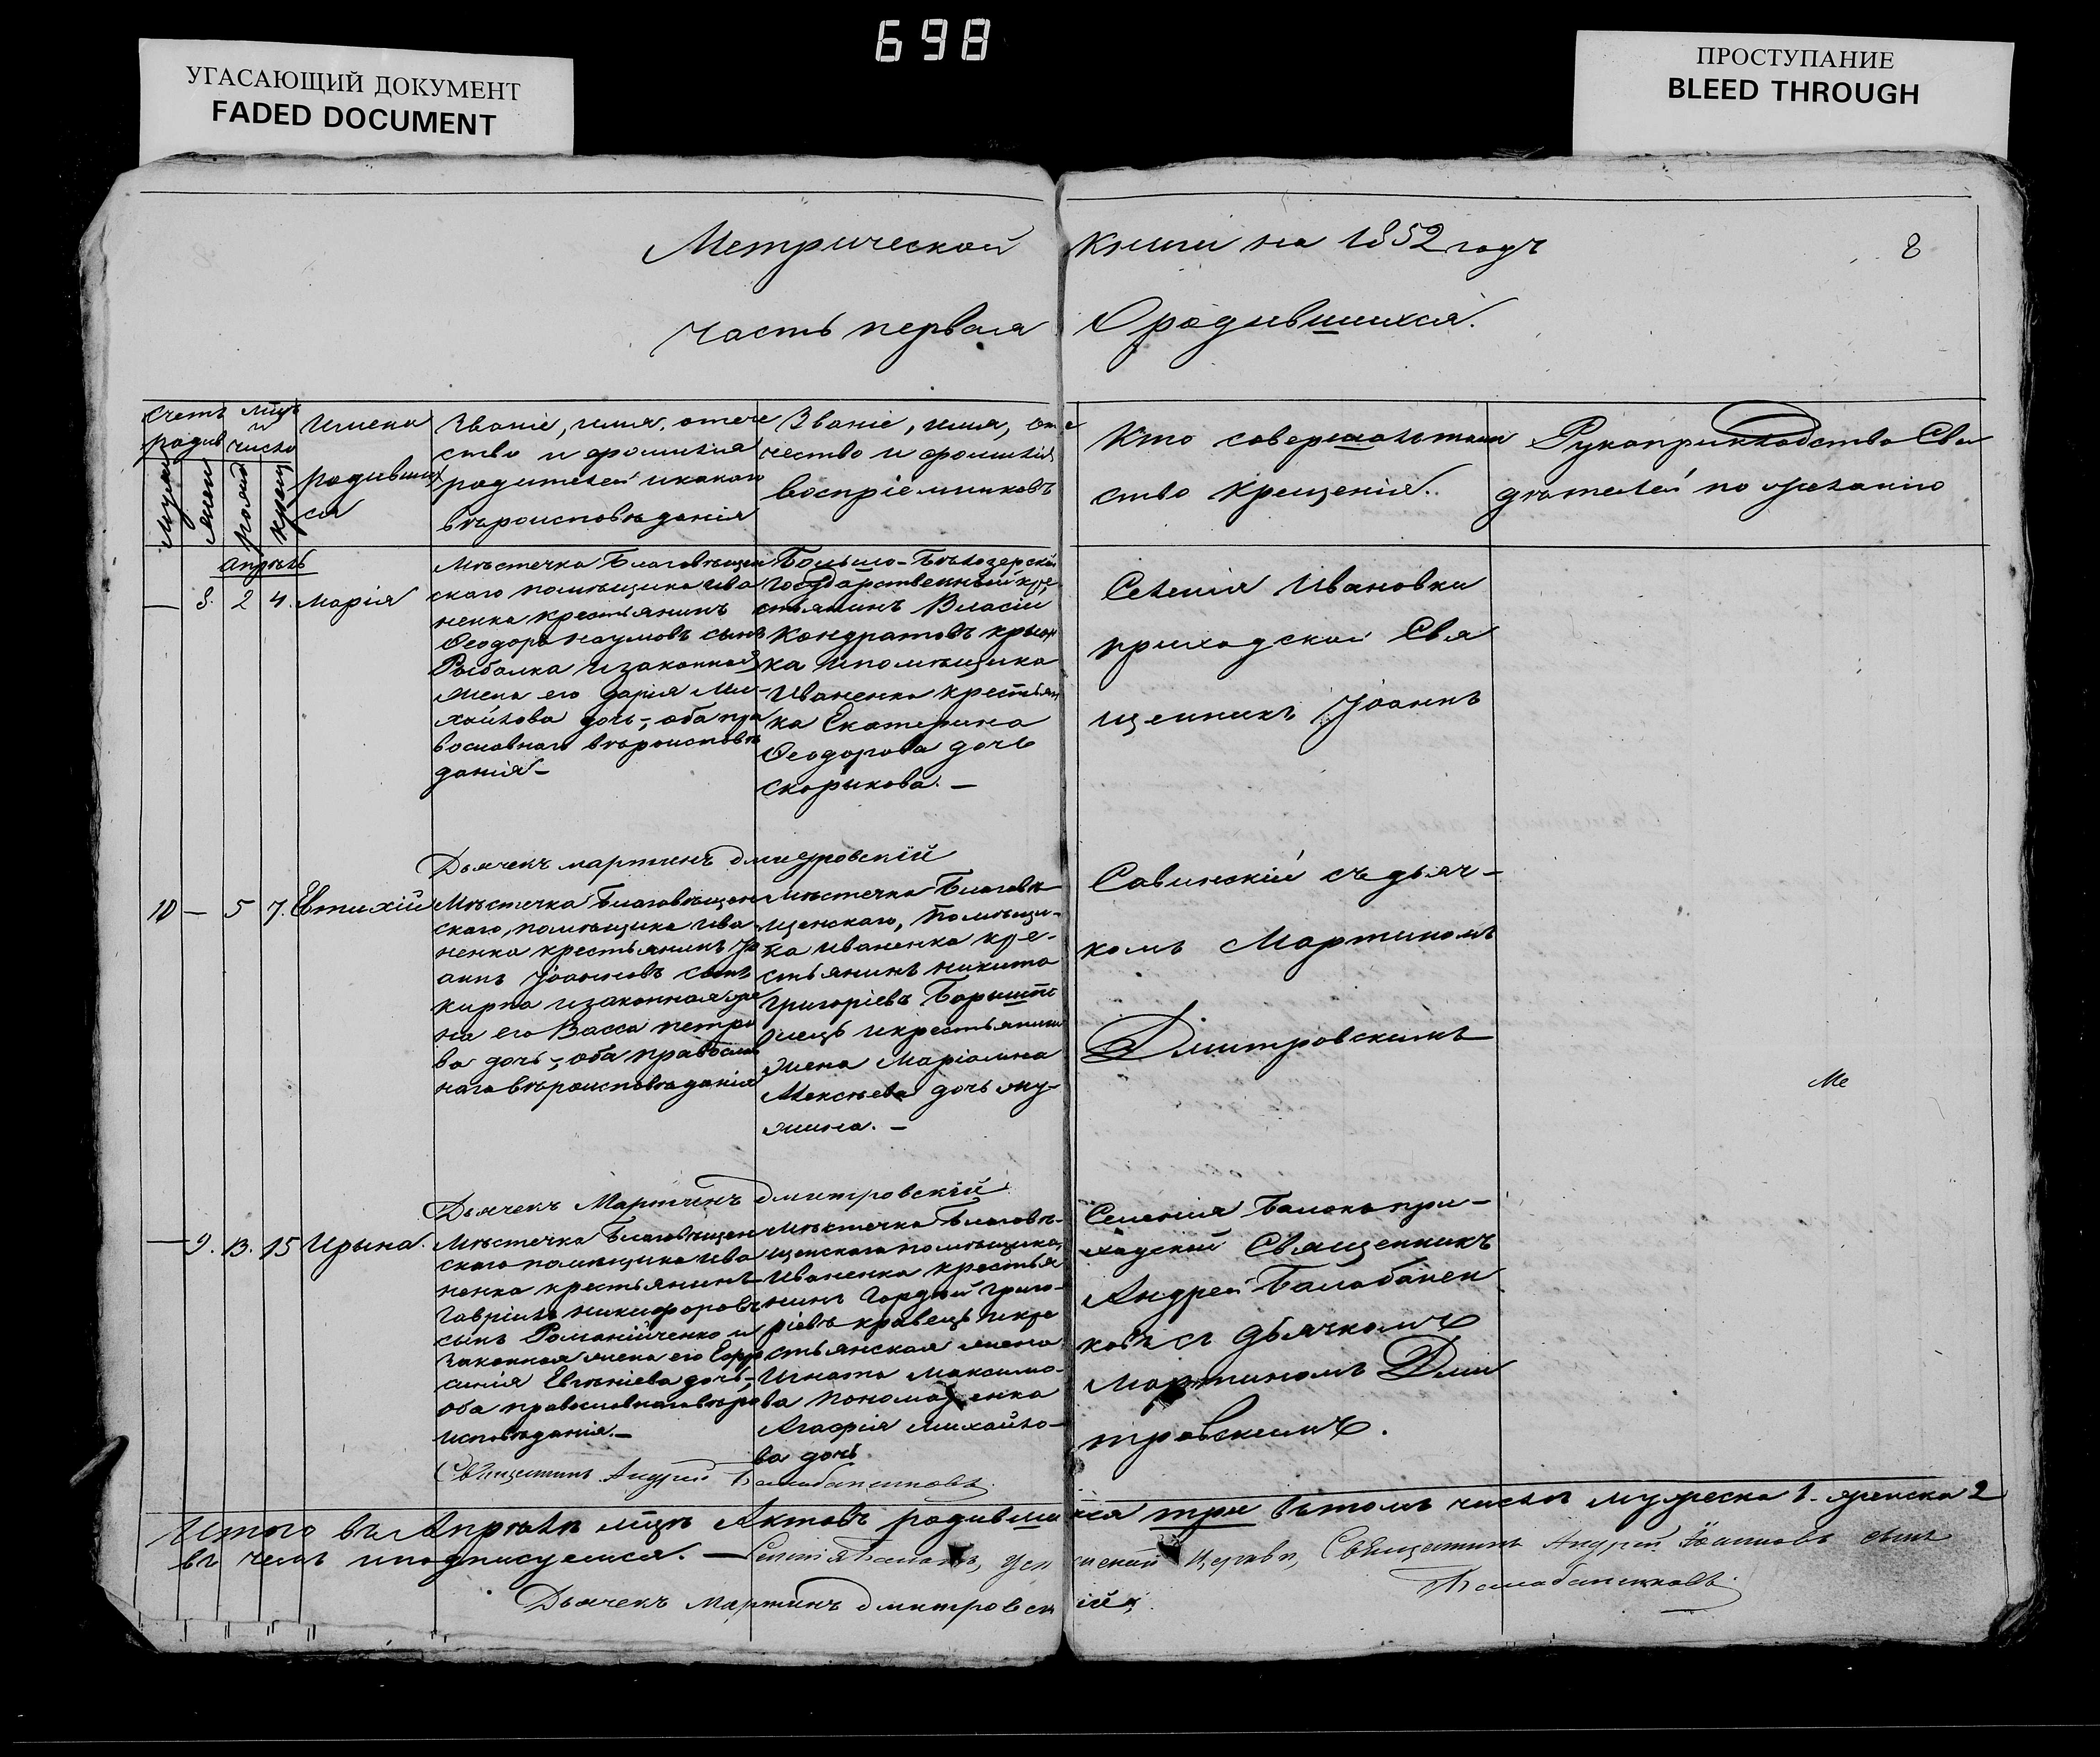 698
УГАСАЮЩИЙ ДОКУМЕНТ
FADED DOCUMENT
ПРОСТУПАНИЕ
BLEED THROUGH
Метрической книги на 1852 годъ
8
Часть первая О родившихся.
Счетъ родив
муж
жен
мѣцъ и число
рожд
крещ
Имена
родивших
ся
Званіе, имя, отече
ство и фамилія
родителей и какого
вѣроисповѣданія
Званіе, имя, оте
чество и фамилія
воспріемниковъ
Кто совершалъ таин
ство крещенія.
Рукоприкладство Сви
дѣтелей по желанію
Апрѣль
— 8. 2 4. Марія
Мѣстечка Благовѣщен
скаго помѣщика Ива
ненка крестьянинъ
Феодоръ Наумовъ сынъ
Рыбалка и законная
жена его Дарія Ми-
хайлова дочь, оба пра
вославнаго вѣроисповѣ
данія —
Больше-Бѣлозерскій
государственный кре
стьянинъ Власій
Кондратовъ
ка и помѣщика
Иваненка крестьян
ка Екатерина
Феодорова дочь
Скорикова. —
Селенія Ивановки
приходской Свя
щенникъ Іоаннъ
Дьячекъ Мартинъ Дмитровскій
10 — 5 7. Евтихій
Мѣстечка Благовѣщен
скаго, помѣщика Ива
ненка крестьянинъ Іо
аннъ Іоанновъ сынъ
Кирпа и законная же
на его Васса Петро
ва дочь, оба православ
наго вѣроисповѣданія
Мѣстечка Благовѣ-
щенскаго, помѣщи-
ка Иваненка кре-
стьянинъ Никита
Григоріевъ
и крестьянина
жена Маріамна
Алексѣева дочь
Савинскій съ дьяч-
комъ Мартиномъ
Дмитровскимъ
Ме
Дьячекъ Мартинъ Дмитровскій
— 9. 13. 15 Ирына.
Мѣстечка Благовѣщен
скаго помѣщика Ива
ненка крестьянинъ
Гавріилъ Никифоровъ
сынъ Романійченко и
законная жена его Евфро
синія Евгеніева дочь,
оба православнаго вѣро
исповѣданія. —
Мѣстечка Благовѣ-
щенскаго помѣщика,
Иваненка крестья
нинъ Гордѣй Григо-
ріевъ Кравецъ и кре
стьянская жена
Игната Максимо-
ва Пономаренка
Агафія Михайло-
ва дочь
Селенія Балока при-
ходской Священникъ
Андрей Балабанен
ковъ съ дьячкомъ
Мартиномъ Дми
тровскимъ.
Священникъ Андрей Балабаненковъ
Итого въ Апрѣлѣ мѣцѣ Актовъ родившихся три въ томъ числѣ мужеска 1. женска 2
въ чемъ и подписуемся. — Селенія Балока, Усп нской Церкви, Священникъ Андрей Іоанновъ сынъ
Балабаненковъ
Дьячекъ Мартинъ Дмитровскій